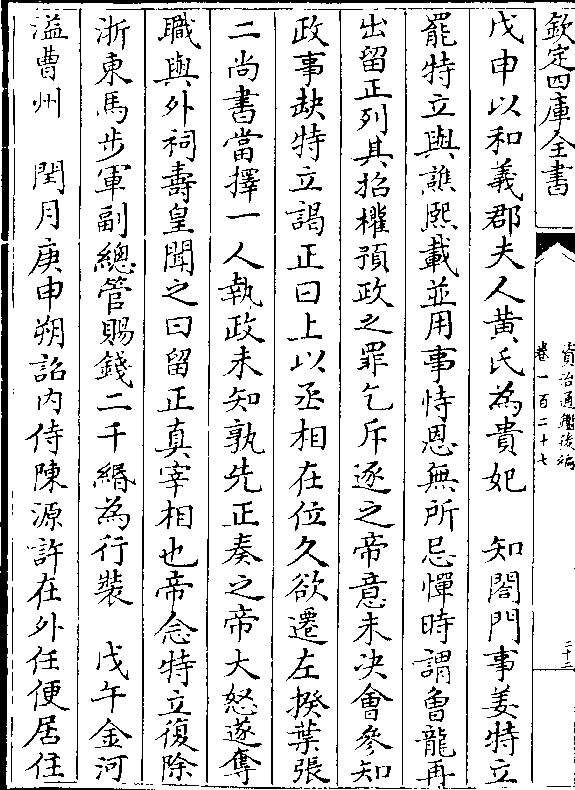 欽定四庫全書
資治通鑑後編
卷一百二十七
二十三
戊申以和義郡夫人黄氏為貴妃　知閤門事姜特立
罷特立與譙熙載並用事恃恩無所忌憚時謂曾龍再
出留正列其招權預政之罪乞斥逐之帝意未决會參知
政事缺特立謁正曰上以丞相在位久欲遷左揆葉張
二尚書當擇一人執政未知孰先正奏之帝大怒遂奪
職與外祠壽皇聞之曰留正真宰相也帝念特立復除
浙東馬步軍副總管賜錢二千緡為行裝　戊午金河
溢曹州　閏月庚申朔詔内侍陳源許在外任便居住